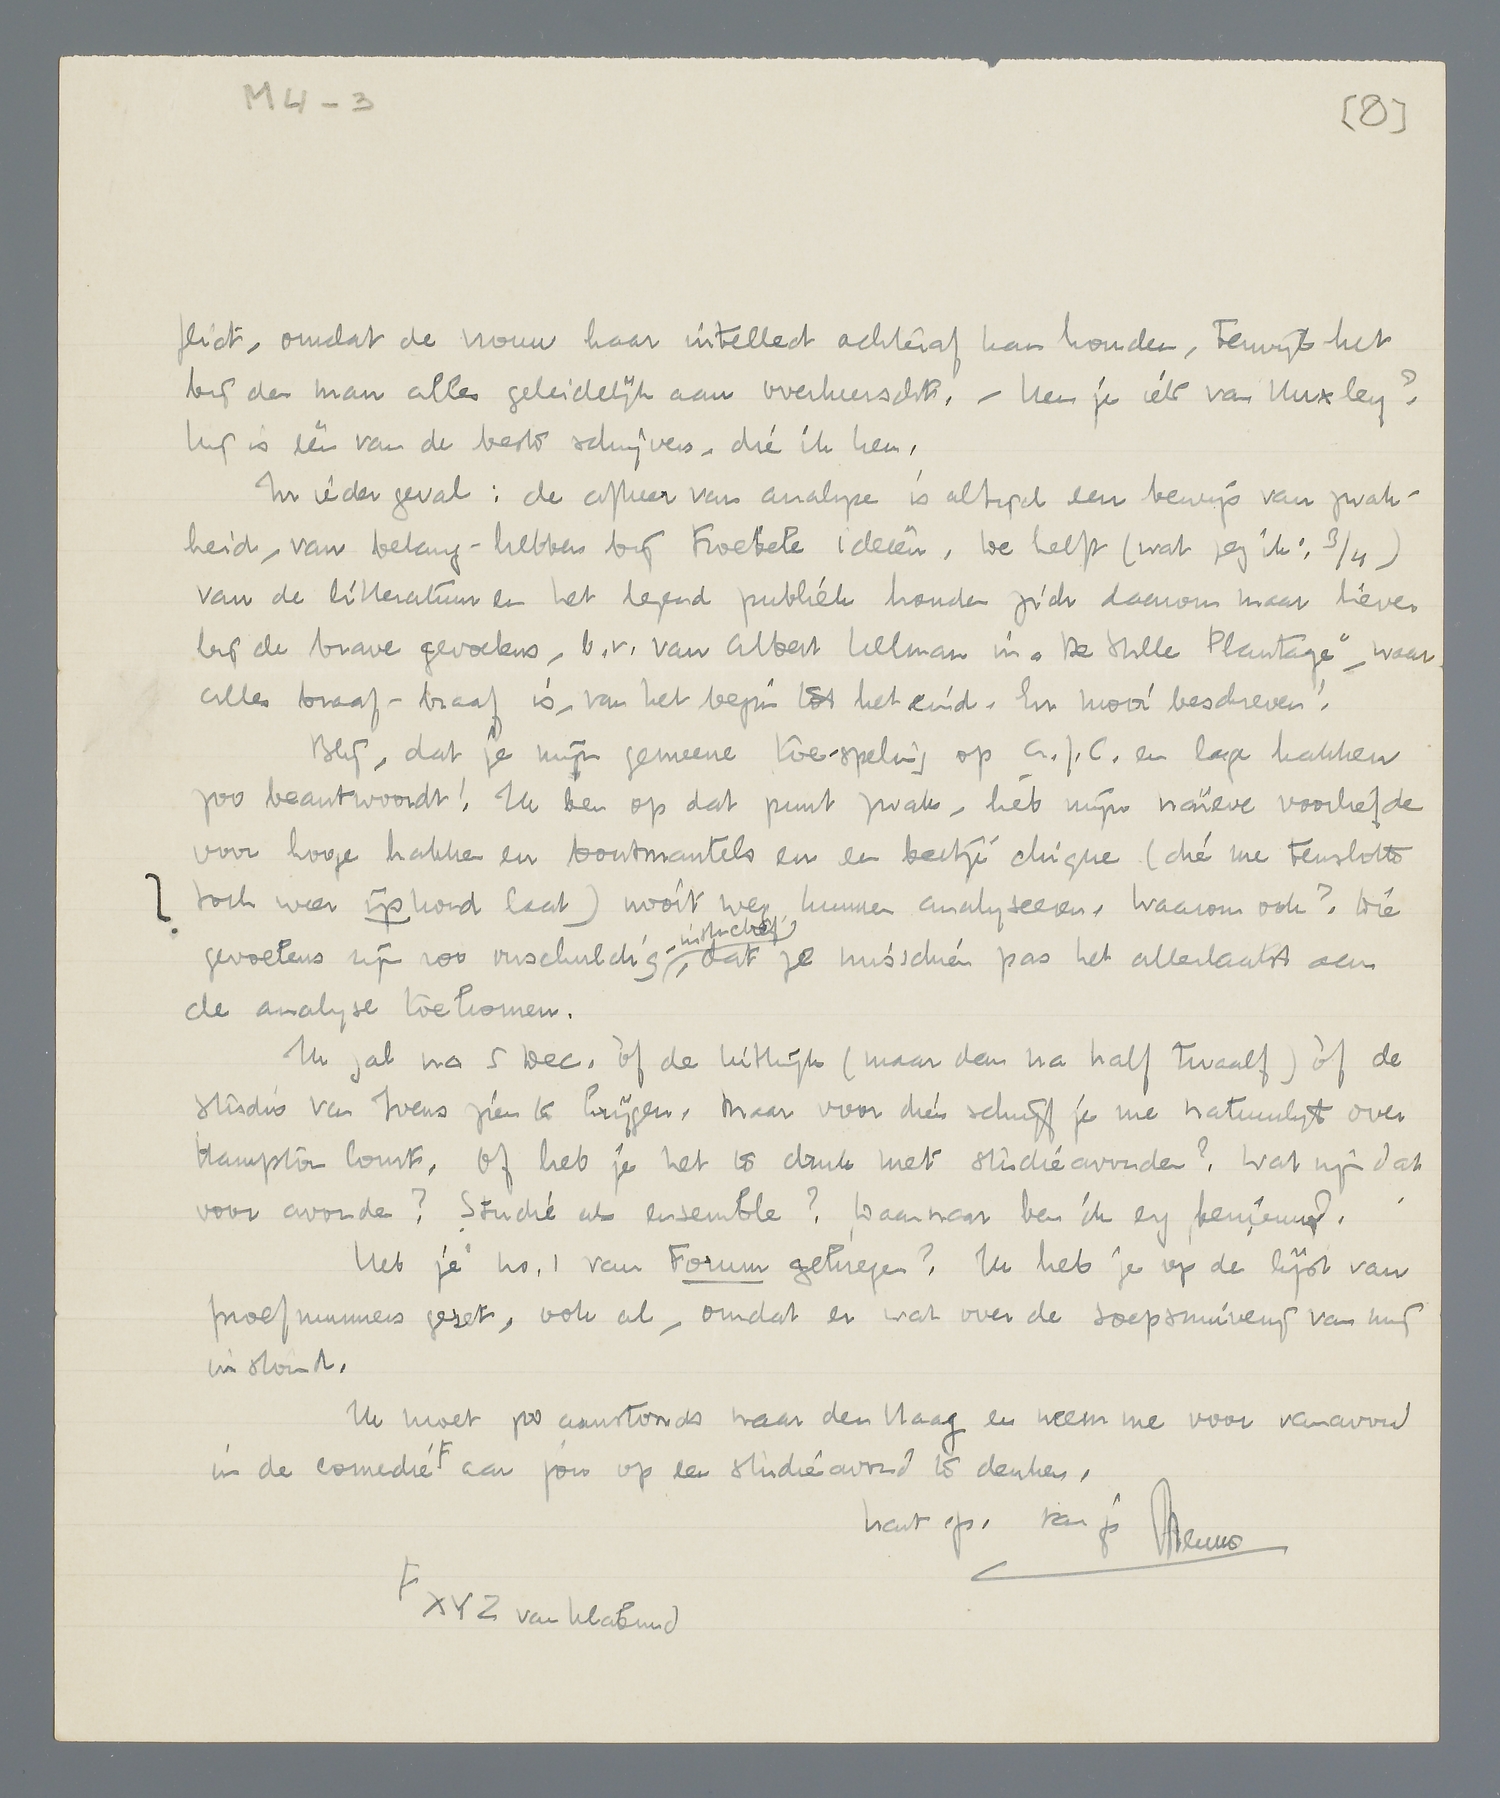 M4-3
[8]
flict, omdat de vrouw haar intellect achteraf kan houden, terwijl het
bij den man alles geleidelijk aan overheerscht. – Ken je iets van Huxley?
Hij is één van de beste schrijvers, die ik ken.
In ieder geval: de afkeer van analyse is altijd een bewijs van zwak-
heid, van belang-hebben bij troebele ideeën. De helft (wat zeg ik: 3/4)
van de litteratuur en het lezend publiek houden zich daarom maar liever
bij de brave gevoelens, b.v. van Albert Helman in „De Stille Plantage", waar
alles braaf-braaf is, van het begin tot het eind. En mooi beschreven!
Blij, dat je mijn gemeene toe-speling op C.J.C. en lage hakken
zoo beantwoordt! Ik ben op dat punt zwak, heb mijn naïeve voorliefde
voor hooge hakken en bontmantels en een beetje chique (die me tenslotte
toch weer ijskoud laat) nooit weg kunnen analyseeren. Waarom ook? Die
gevoelens zijn zoo onschuldig, instinctief, dat je misschien pas het allerlaatst aan
de analyse toekomen.
Ik zal na 5 Dec. òf de Uitkijk (maar dan na half twaalf) òf de
studio van Ivens zien te krijgen. Maar voor dien schrijf je me natuurlijk over
Hampton Court. Of heb je het te druk met studieavonden? Wat zijn dat
voor avonden? Studie als ensemble? Daarnaar ben ik erg benieuwd.
Heb je no. 1 van Forum gekregen? Ik heb je op de lijst van
proefnummers gezet, ook al, omdat er wat over de soepsmiverij van mij
in stond.
Ik moet zoo aanstonds naar den Haag en neem me voor vanavond
in de comedie F aan jou op een studieavond te denken.
van je Menno
F XYZ van Klabund